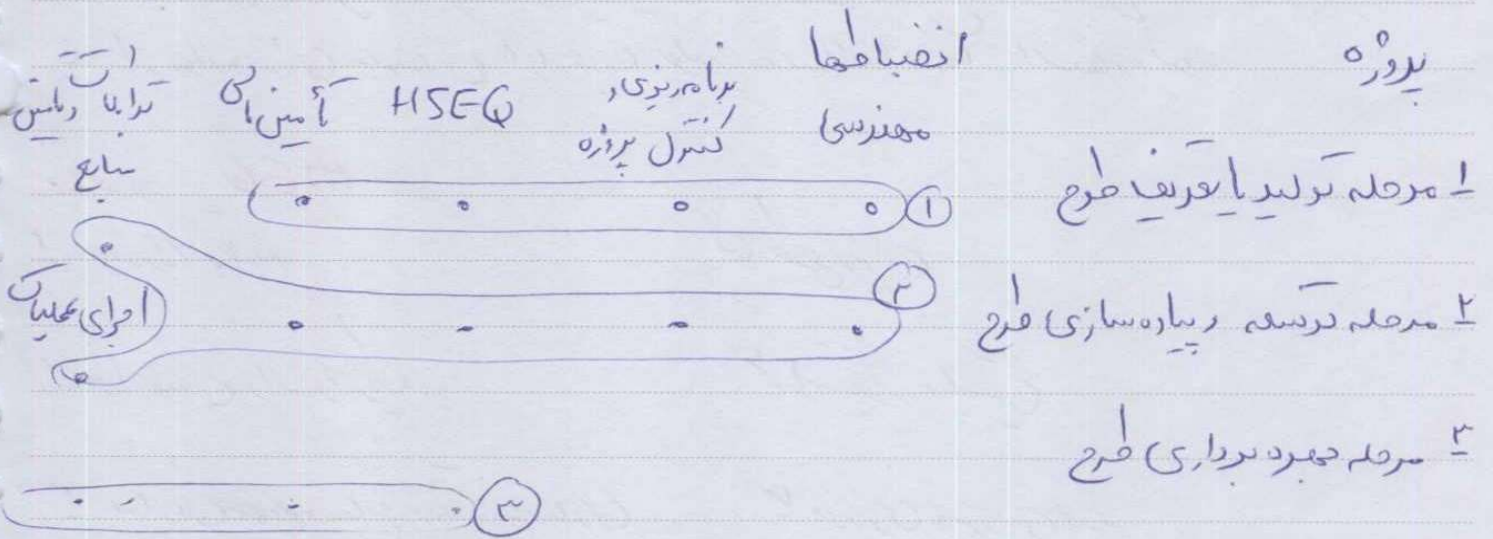 پروژه
انضباطها
مهندسی
برنامه‌ریزی و
کنترل پروژه
HSEQ
تأمین مالی
تدارکات و تامین
منابع
۱ مرحله تولید یا تعریف طرح
۱
۲ مرحله توسعه و پیاده‌سازی طرح
۲
اجرای عملیات
۳ مرحله بهره برداری طرح
۳